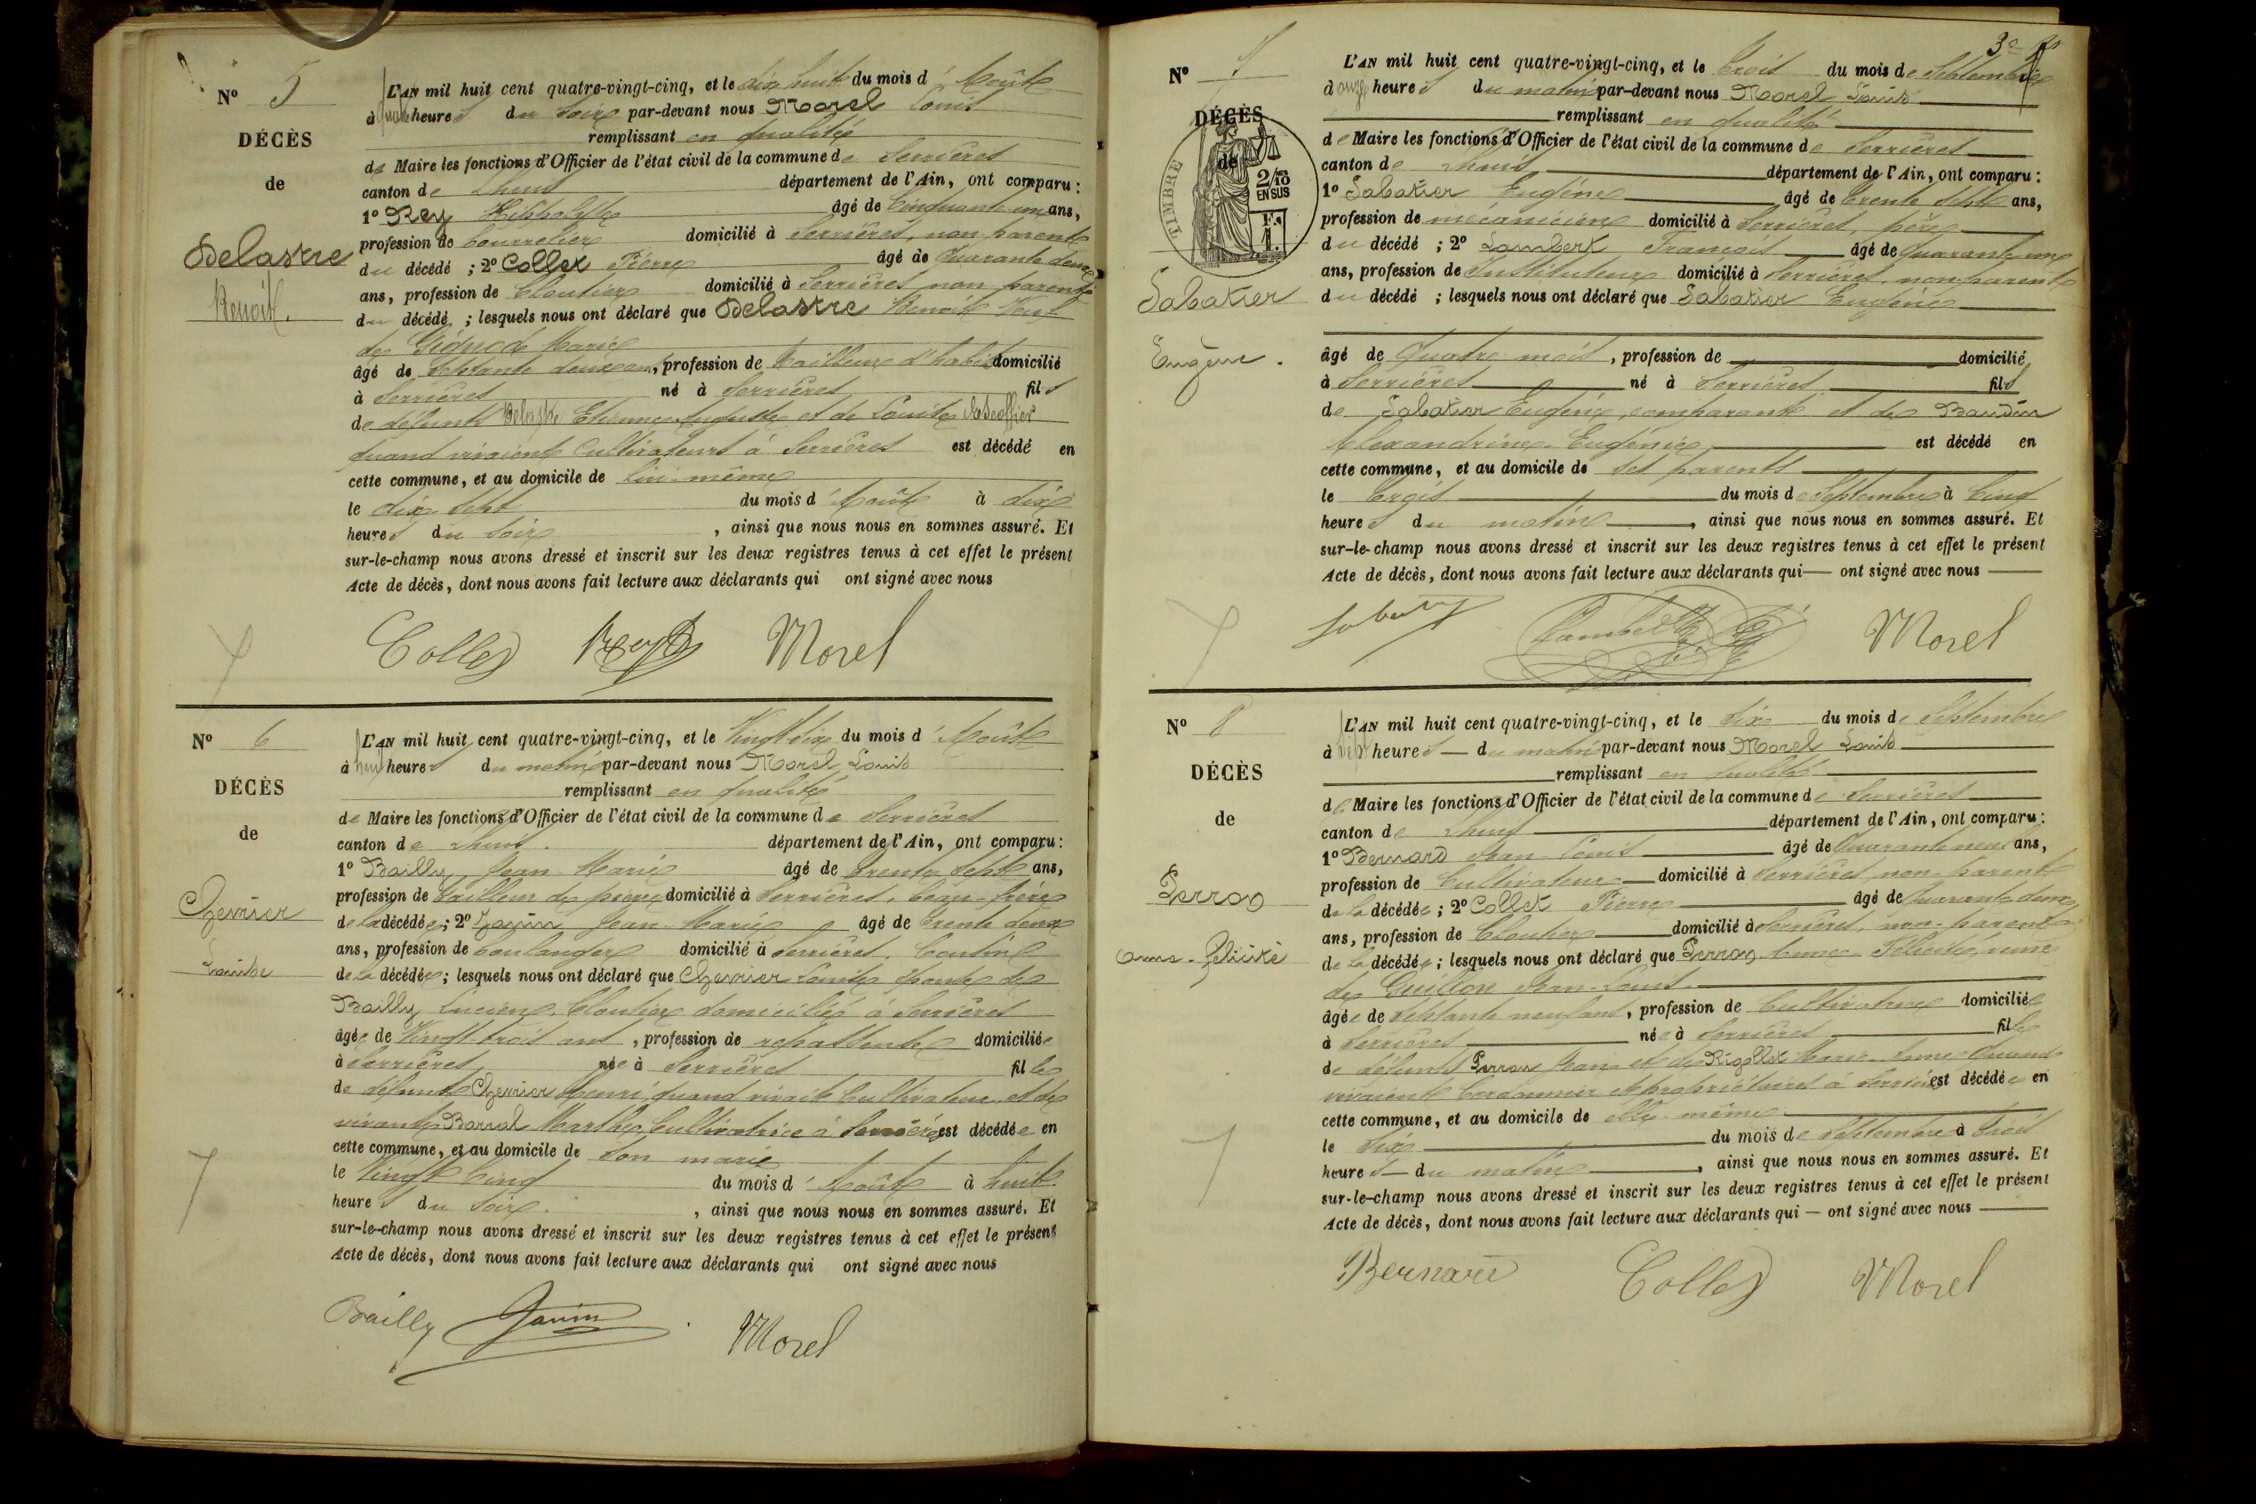 Nº 5
DÉCÈS
de
Delastre
Benoit.
L'AN mil huit cent quatre-vingt-cinq, et le dix huit du mois d'Août
à quatre heures du soir par-devant nous Morel Louis
remplissant en qualité
de Maire les fonctions d'Officier de l'état civil de la commune de Serrières
canton de Lhuis département de l'Ain, ont comparu :
1º Rey Hippolyte âgé de Cinquante un ans,
profession de bourrelier domicilié à Serrières, non parent
du décédé ; 2º Collet Pierre âgé de Quarante deux
ans, profession de Cloutier domicilié à Serrières non parent
du décédé ; lesquels nous ont déclaré que Delastre Benoit Veuf
de Marie
âgé de Septante deux ans, profession de Tailleur d'habits domicilié
à Serrières né à Serrières fils
de défunts Delastre Etienne Auguste et de Louise
quand vivaient Cultivateurs à Serrières est décédé en
cette commune, et au domicile de lui-même
le dix Sept du mois d'Août à dix
heures du soir , ainsi que nous nous en sommes assuré. Et
sur-le-champ nous avons dressé et inscrit sur les deux registres tenus à cet effet le présent
Acte de décès, dont nous avons fait lecture aux déclarants qui ont signé avec nous
Collet Rey Morel
Nº 6
DÉCÈS
de
Chevrier
Louise
L'AN mil huit cent quatre-vingt-cinq, et le Vingt Six du mois d'Août
à heures du matin par-devant nous Morel Louis
remplissant en qualité
de Maire les fonctions d'Officier de l'état civil de la commune de Serrières
canton de Lhuis. département de l'Ain, ont comparu :
1º Bailly, Jean Marie âgé de Trente Sept ans,
profession de Tailleur de pierre domicilié à Serrières, beau-frère
de la décédée ; 2º Janin Jean Marie âgé de trente deux
ans, profession de boulanger domicilié à Serrières. Cousin
de la décédée ; lesquels nous ont déclaré que Chevrier Louise épouse de
Bailly Lucien, Cloutier domiciliée à Serrières
âgée de Vingt trois ans, profession de repasseuse domiciliée
à Serrières née à Serrières fille
de défunt Chevrier Henri quand vivait Cultivateur et de
vivante Barral Marthe, Cultivatrice à Serrières est décédée en
cette commune, et au domicile de Son mari
le Vingt Cinq du mois d'Août à huit
heures du soir. , ainsi que nous nous en sommes assuré. Et
sur-le-champ nous avons dressé et inscrit sur les deux registres tenus à cet effet le présent
Acte de décès, dont nous avons fait lecture aux déclarants qui ont signé avec nous
Bailly Janin Morel
Nº 7
DÉCÈS
de
TIMBRE
2/10 EN SUS
Sabatier
Eugène.
L'AN mil huit cent quatre-vingt-cinq, et le trois du mois de Septembre
à onze heures du matin par-devant nous Morel Louis
remplissant en qualité
de Maire les fonctions d'Officier de l'état civil de la commune de Serrières
canton de Lhuis département de l'Ain, ont comparu :
1º Sabatier Eugène âgé de trente Sept ans,
profession de mécanicien domicilié à Serrières, père
du décédé ; 2º Lambert François âgé de Quarante un
ans, profession de Instituteur domicilié à Serrières, non parent
du décédé ; lesquels nous ont déclaré que Sabatier Eugène
âgé de Quatre mois, profession de domicilié
à Serrières né à Serrières fils
de Sabatier Eugène, comparant et de Baudin
Alexandrine Eugénie est décédé en
cette commune, et au domicile de ses parents
le trois du mois de Septembre à Cinq
heures du matin , ainsi que nous nous en sommes assuré. Et
sur-le-champ nous avons dressé et inscrit sur les deux registres tenus à cet effet le présent
Acte de décès, dont nous avons fait lecture aux déclarants qui ont signé avec nous
Lambert Morel
Nº 8
DÉCÈS
de
Perron
Anne-Félicité
L'AN mil huit cent quatre-vingt-cinq, et le Six du mois de Septembre
à sept heures du matin par-devant nous Morel Louis
remplissant en qualité
de Maire les fonctions d'Officier de l'état civil de la commune de Serrières
canton de Lhuis département de l'Ain, ont comparu :
1º Bernard Jean-Louis âgé de Quarante neuf ans,
profession de Cultivateur domicilié à Serrières, non-parent
de la décédée ; 2º Collet Pierre âgé de Quarante deux
ans, profession de Cloutier domicilié à Serrières, non-parent
de la décédée ; lesquels nous ont déclaré que Perron Anne-Félicité, veuve
de Guillon Jean-Louis.
âgée de Septante neuf ans, profession de Cultivatrice domiciliée
à Serrières née à Serrières fille
de défunts Perron Jean et de Rigollet Marie-Anne quand
vivaient Cordonnier et propriétaires à Serrières est décédée en
cette commune, et au domicile de elle-même
le Six du mois de Septembre à trois
heures du matin , ainsi que nous nous en sommes assuré. Et
sur-le-champ nous avons dressé et inscrit sur les deux registres tenus à cet effet le présent
Acte de décès, dont nous avons fait lecture aux déclarants qui ont signé avec nous
Bernard Collet Morel